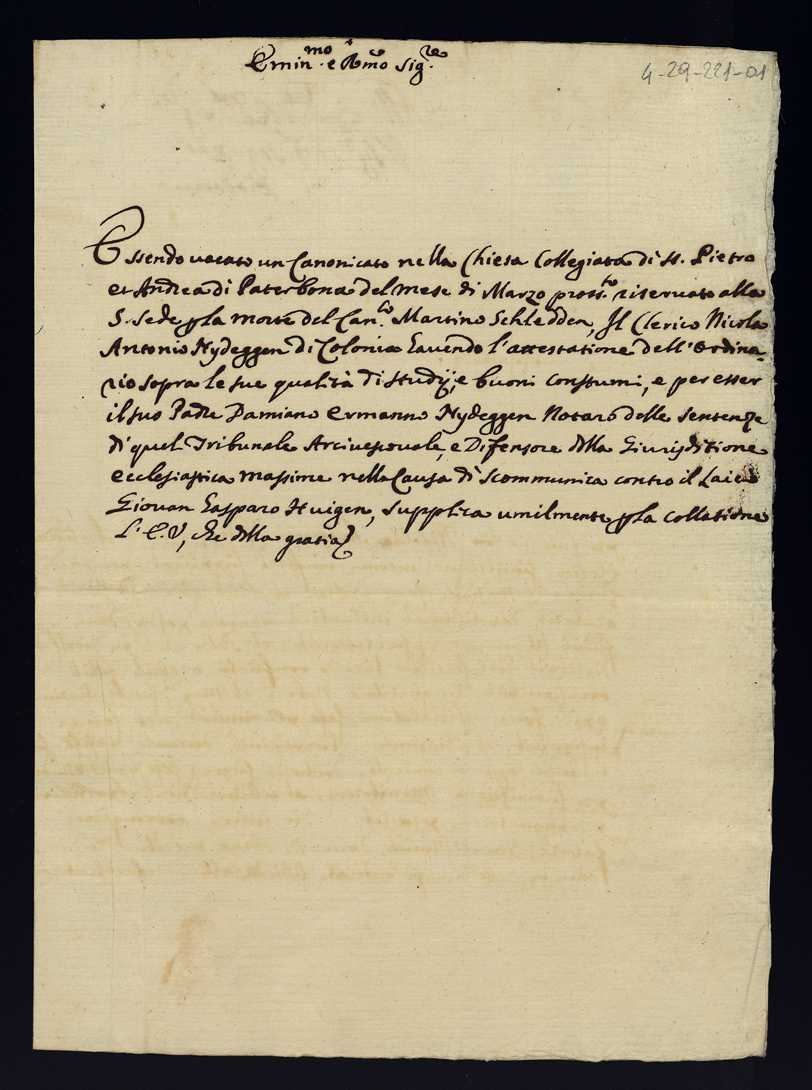 Emin.mo e R.mo Sig.re
4-29-221-01
Essendo vacato un Canonicato nella Chiesa Collegiata di SS. Pietro
et Andrea di Paterbona del mese di Marzo pross.to riservato alla
S. Sede p la morte del Can.co Martino Schledden, Il Clerico Nicola
Antonio Nydeggen di Colonia havendo l'attestatione dell'Ordina-
rio sopra le sue qualità di studij, e buoni constumi, e per esser
il suo Padre Damiano Ermanno Nydeggen Notaro delle sentenze
di quel Tribunale Arcivescovale, e Difensore della Giurisditione
ecclesiastica massime nella Causa di scommunica contro il Laico
Giovan Gasparo Huigen, supplica umilmente p la collatione
L'E.V., che della gratia